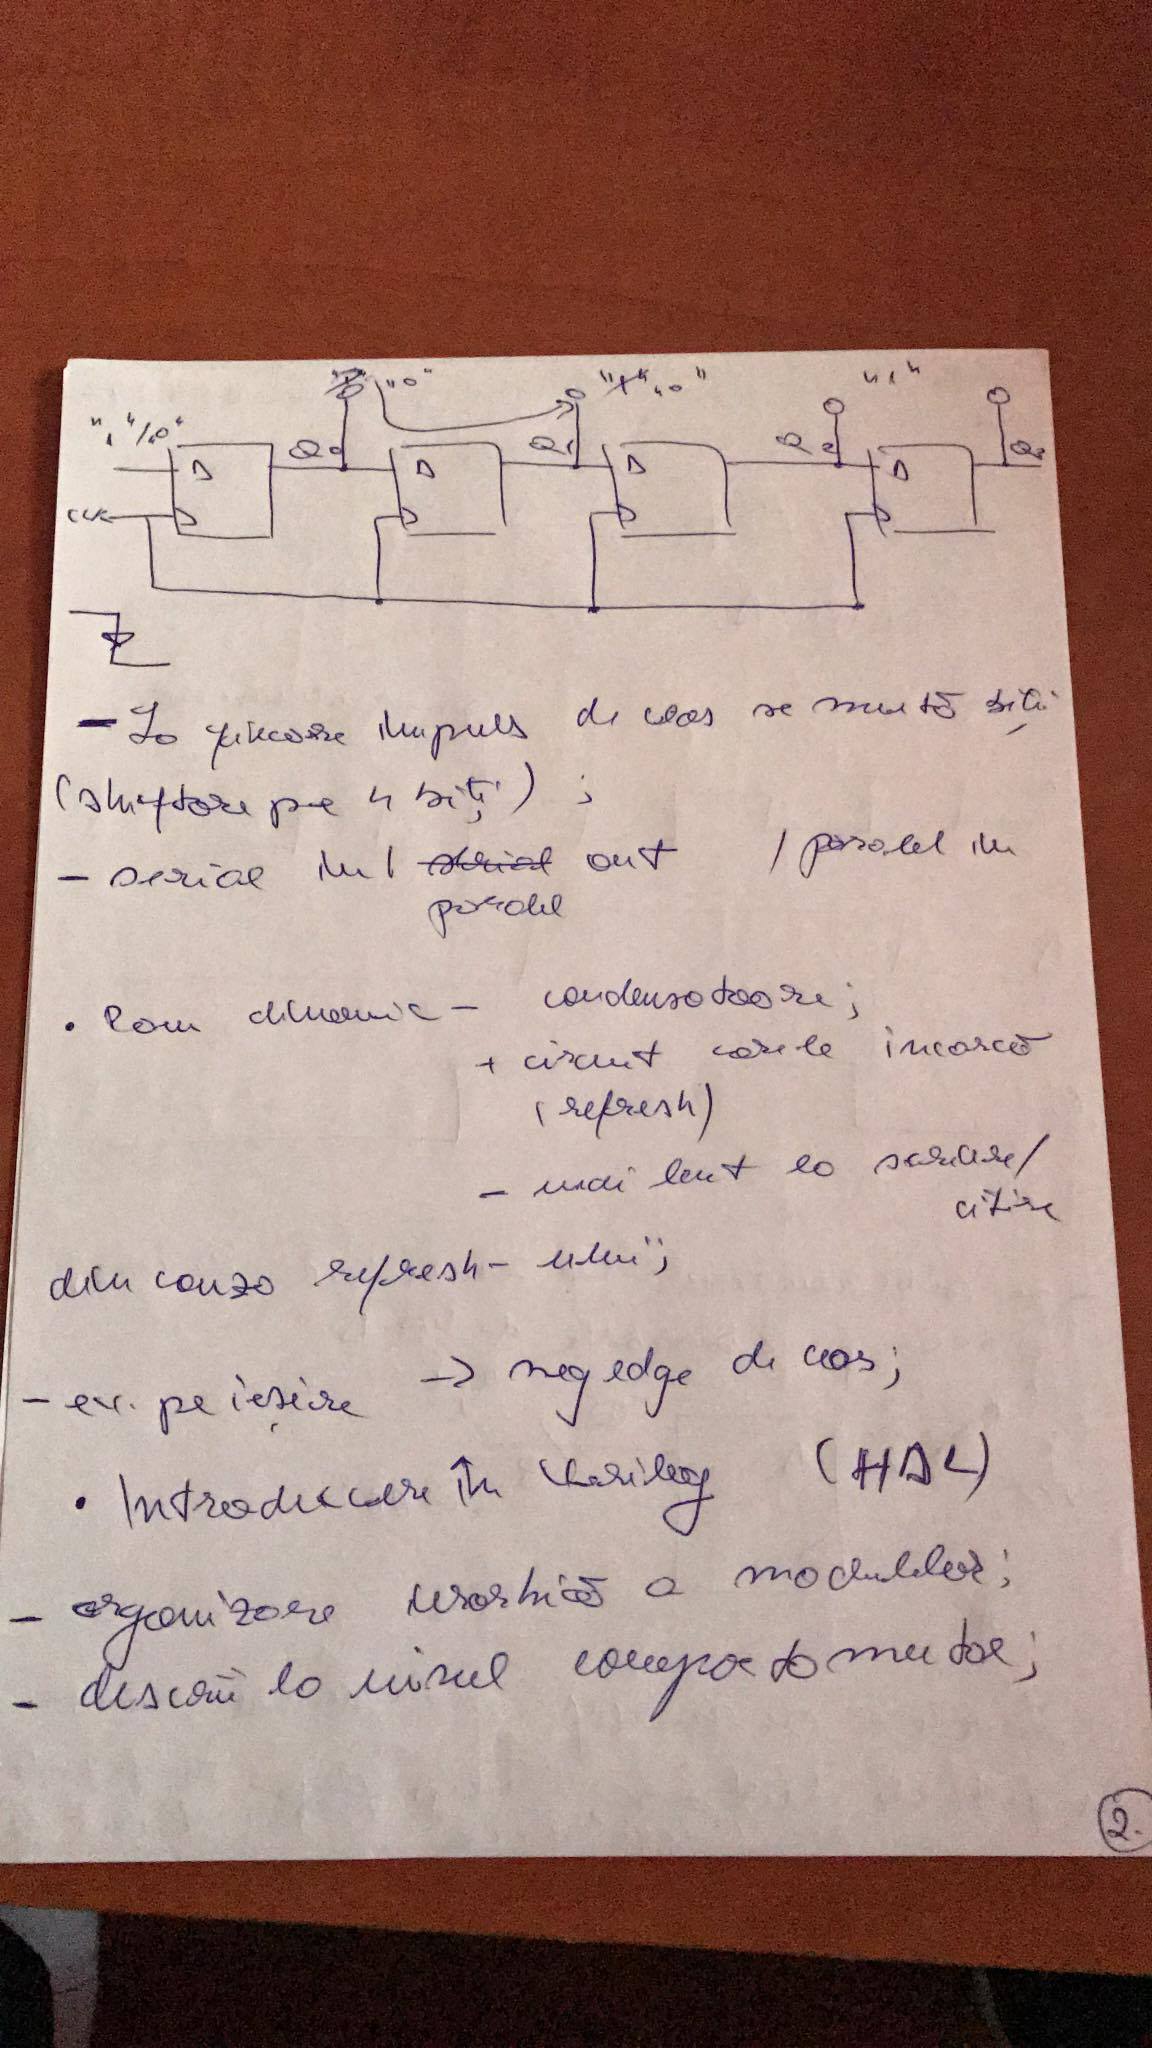 "1"/"0" "0" "1" "0" "1"
D Q0 D Q1 D Q2 D Q3
CLK
- La fiecare impuls de ceas se mută biții
(shiftare pe 4 biți) ;
- serial in / serial out / paralel in
paralel
• Ram dinamic - condensatoare;
+ circuit care le incarcă
(refresh)
- mai lent la scriere/
citire
din cauza refresh-ului;
- ev. pe ieșire -> negedge de ceas;
• Introducere în Verilog (HDL)
- organizare ierarhică a modulelor;
- descrii la nivel comportamental;
2.